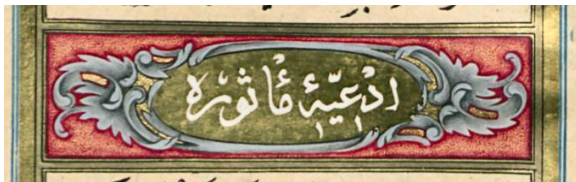 ادعيهٔ مأثوره